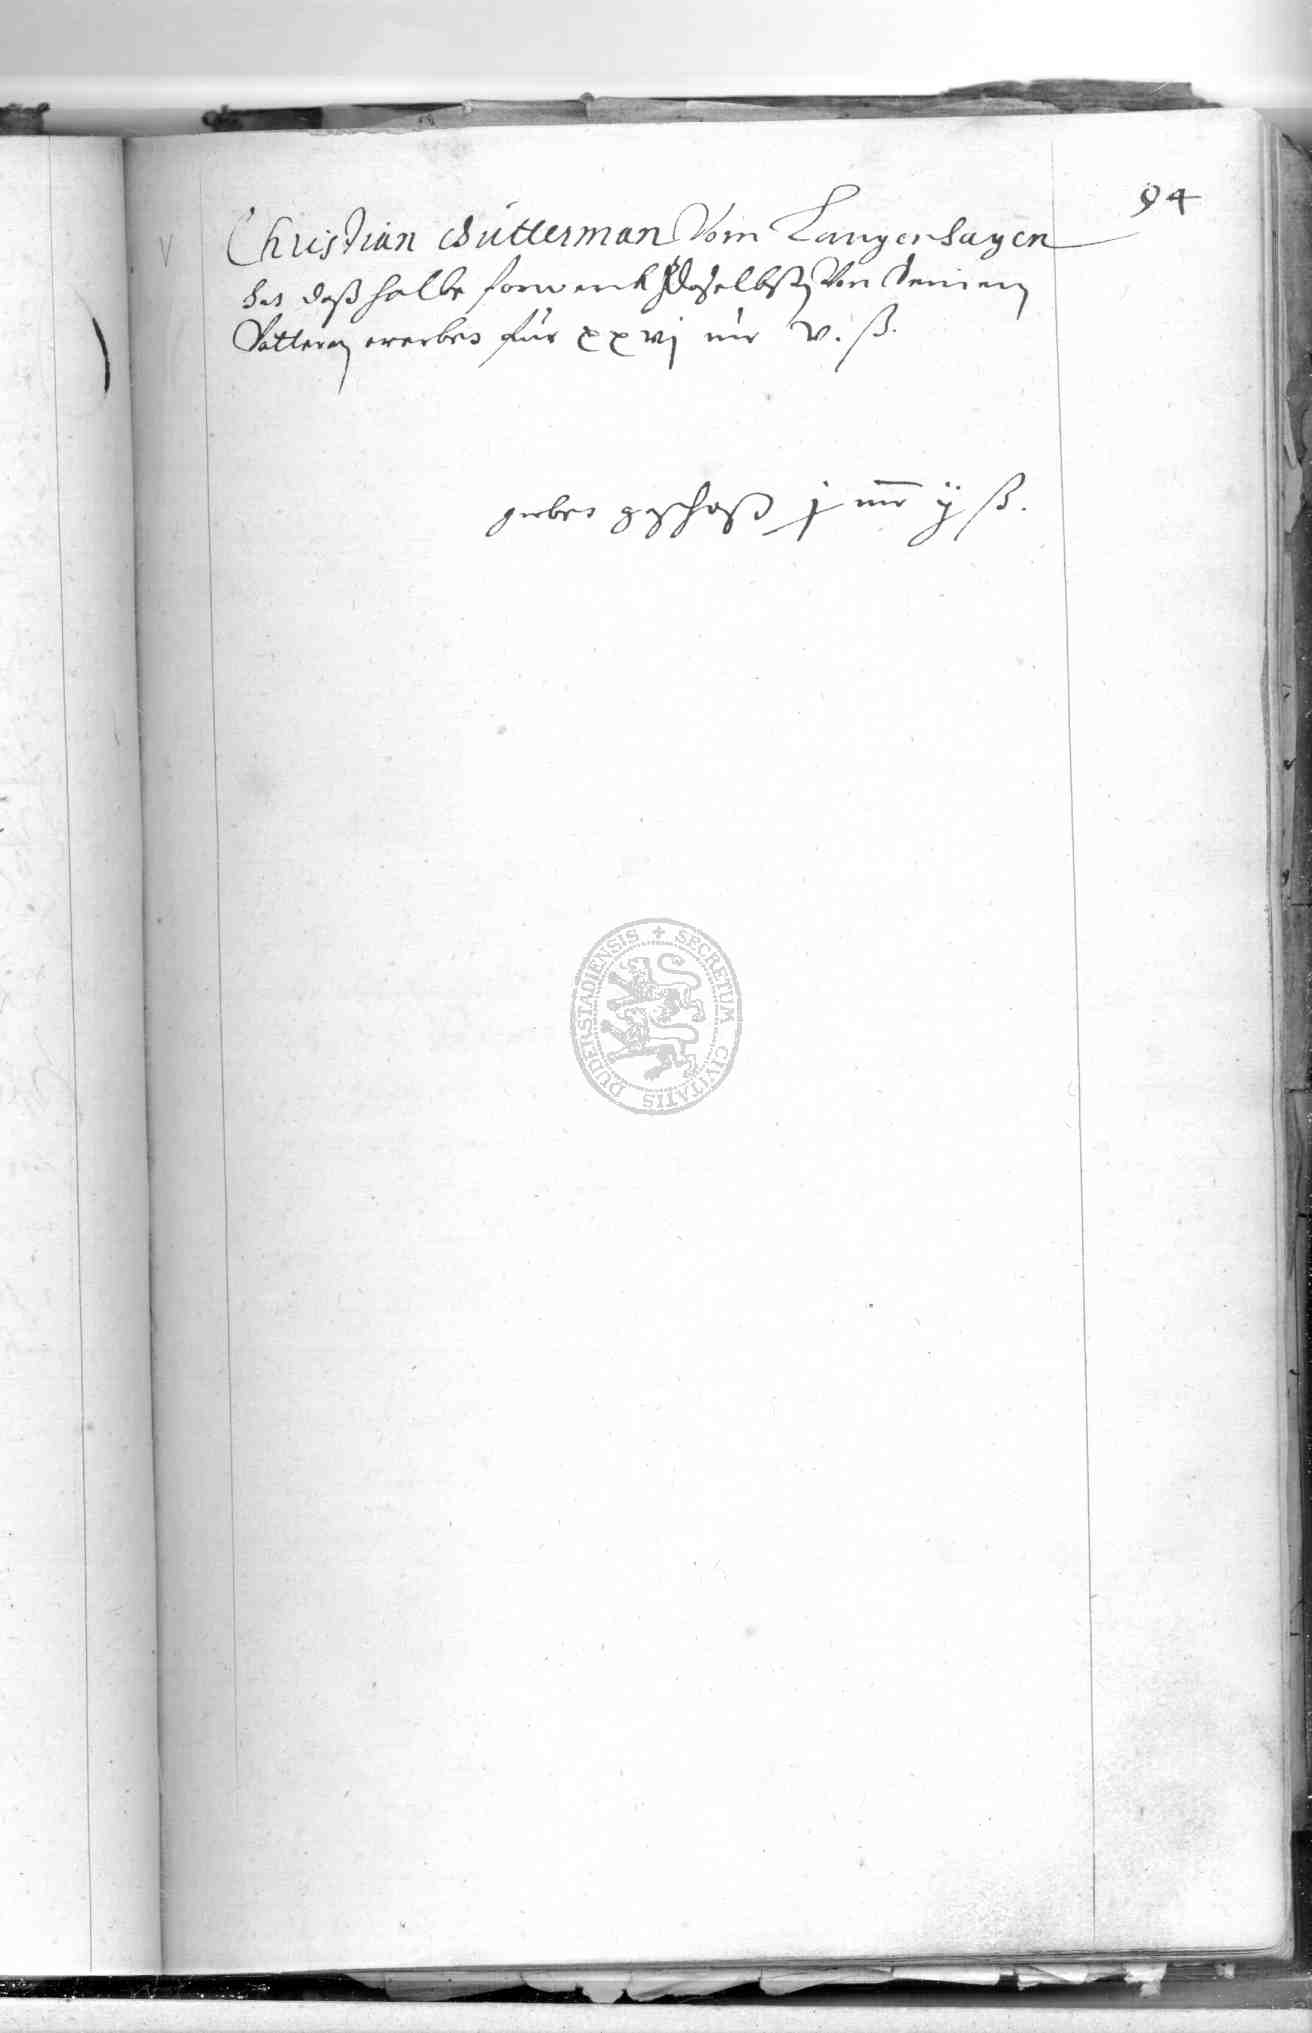 94
Christian Gütterman Vom Langenhagen
hat daß halbe forwerk daselbst Von seinem
Vattern ererbet für xxvj mr v. ß.
giebet geschoß j mr ij ß.
SECRETUM CIVITATIS DUDERSTADIENSIS